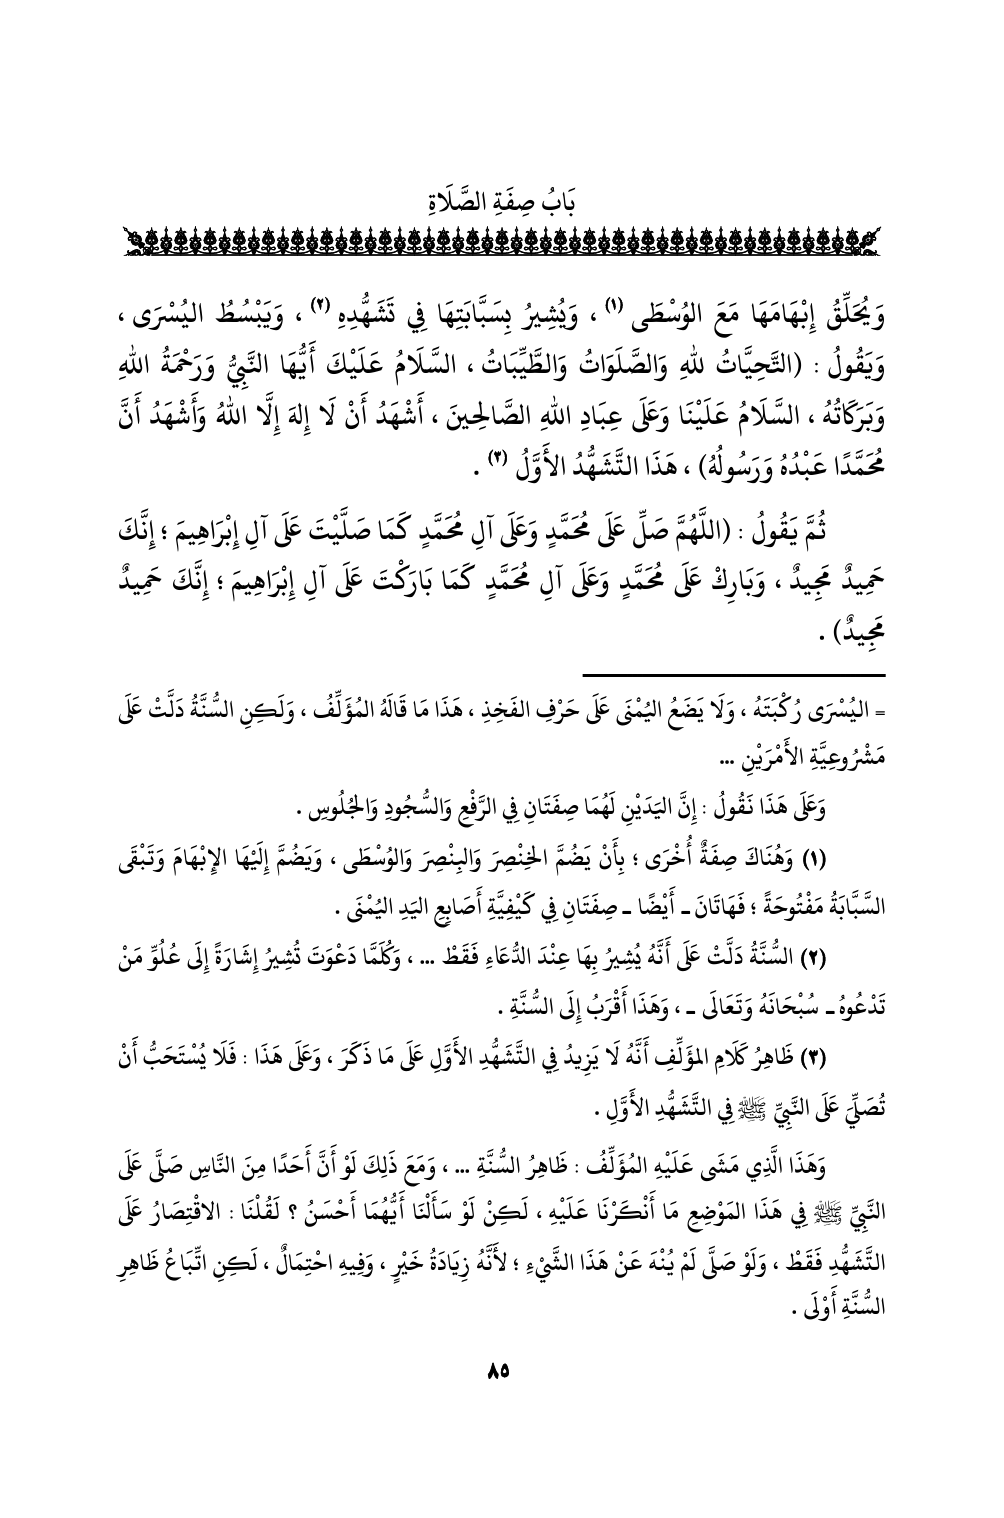 بَابُ صِفَةِ الصَّلَاةِ
وَيُحَلِّقُ إِبْهَامَهَا مَعَ الوُسْطَى (١) ، وَيُشِيرُ بِسَبَّابَتِهَا فِي تَشَهُّدِهِ (٢) ، وَيَبْسُطُ اليُسْرَى ،
وَيَقُولُ : (التَّحِيَّاتُ للهِ وَالصَّلَوَاتُ وَالطَّيِّبَاتُ ، السَّلَامُ عَلَيْكَ أَيُّهَا النَّبِيُّ وَرَحْمَةُ اللهِ
وَبَرَكَاتُهُ ، السَّلَامُ عَلَيْنَا وَعَلَى عِبَادِ اللهِ الصَّالِحِينَ ، أَشْهَدُ أَنْ لَا إِلهَ إِلَّا اللهُ وَأَشْهَدُ أَنَّ
مُحَمَّدًا عَبْدُهُ وَرَسُولُهُ) ، هَذَا التَّشَهُّدُ الأَوَّلُ (٣) .
ثُمَّ يَقُولُ : (اللَّهُمَّ صَلِّ عَلَى مُحَمَّدٍ وَعَلَى آلِ مُحَمَّدٍ كَمَا صَلَّيْتَ عَلَى آلِ إِبْرَاهِيمَ ؛ إِنَّكَ
حَمِيدٌ مَجِيدٌ ، وَبَارِكْ عَلَى مُحَمَّدٍ وَعَلَى آلِ مُحَمَّدٍ كَمَا بَارَكْتَ عَلَى آلِ إِبْرَاهِيمَ ؛ إِنَّكَ حَمِيدٌ
مَجِيدٌ) .
= اليُسْرَى رُكْبَتَهُ ، وَلَا يَضَعُ اليُمْنَى عَلَى حَرْفِ الفَخِذِ ، هَذَا مَا قَالَهُ المُؤَلِّفُ ، وَلَكِنِ السُّنَّةُ دَلَّتْ عَلَى
مَشْرُوعِيَّةِ الأَمْرَيْنِ ...
وَعَلَى هَذَا نَقُولُ : إِنَّ اليَدَيْنِ لَهُمَا صِفَتَانِ فِي الرَّفْعِ وَالسُّجُودِ وَالجُلُوسِ .
(١) وَهُنَاكَ صِفَةٌ أُخْرَى ؛ بِأَنْ يَضُمَّ الخِنْصِرَ وَالبِنْصِرَ وَالوُسْطَى ، وَيَضُمَّ إِلَيْهَا الإِبْهَامَ وَتَبْقَى
السَّبَّابَةُ مَفْتُوحَةً ؛ فَهَاتَانَ ـ أَيْضًا ـ صِفَتَانِ فِي كَيْفِيَّةِ أَصَابِعِ اليَدِ اليُمْنَى .
(٢) السُّنَّةُ دَلَّتْ عَلَى أَنَّهُ يُشِيرُ بِهَا عِنْدَ الدُّعَاءِ فَقَطْ ... ، وَكُلَّمَا دَعْوَتَ تُشِيرُ إِشَارَةً إِلَى عُلُوِّ مَنْ
تَدْعُوهُ ـ سُبْحَانَهُ وَتَعَالَى ـ ، وَهَذَا أَقْرَبُ إِلَى السُّنَّةِ .
(٣) ظَاهِرُ كَلَامِ المؤَلِّفِ أَنَّهُ لَا يَزِيدُ فِي التَّشَهُّدِ الأَوَّلِ عَلَى مَا ذَكَرَ ، وَعَلَى هَذَا : فَلَا يُسْتَحَبُّ أَنْ
تُصَلِّيَ عَلَى النَّبِيِّ ﷺ فِي التَّشَهُّدِ الأَوَّلِ .
وَهَذَا الَّذِي مَشَى عَلَيْهِ المُؤَلِّفُ : ظَاهِرُ السُّنَّةِ ... ، وَمَعَ ذَلِكَ لَوْ أَنَّ أَحَدًا مِنَ النَّاسِ صَلَّى عَلَى
النَّبِيِّ ﷺ فِي هَذَا المَوْضِعِ مَا أَنْكَرْنَا عَلَيْهِ ، لَكِنْ لَوْ سَأَلْنَا أَيُّهُمَا أَحْسَنُ ؟ لَقُلْنَا : الاقْتِصَارُ عَلَى
التَّشَهُّدِ فَقَطْ ، وَلَوْ صَلَّى لَمْ يُنْهَ عَنْ هَذَا الشَّيْءِ ؛ لأَنَّهُ زِيَادَةُ خَيْرٍ ، وَفِيهِ احْتِمَالٌ ، لَكِنِ اتِّبَاعُ ظَاهِرِ
السُّنَّةِ أَوْلَى .
٨٥